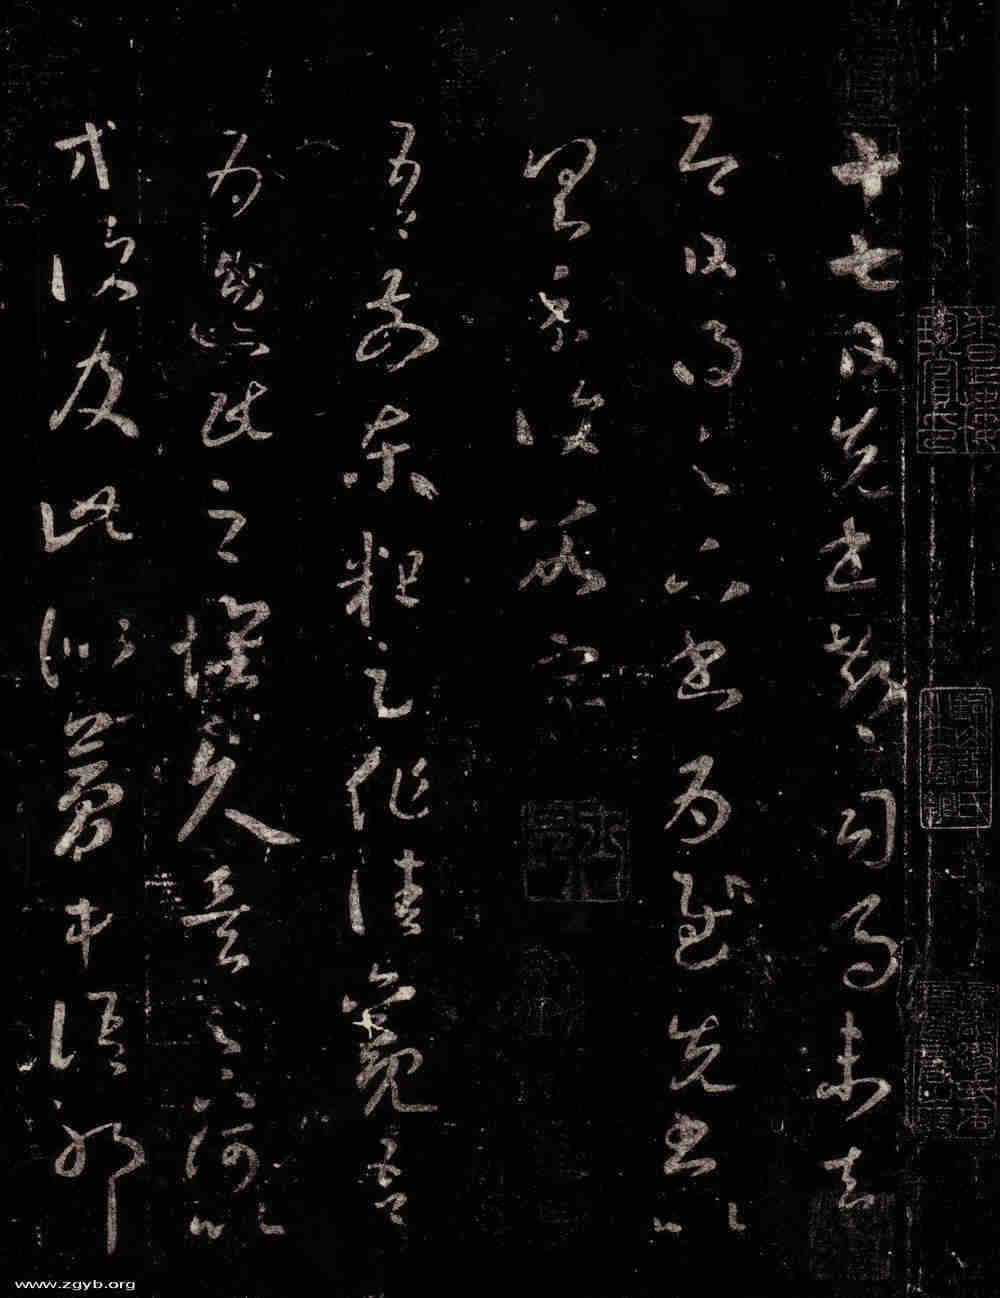 十七日先書郗司馬未去
即日得足下書為慰先書以
具示復數字
吾前東粗足作佳觀吾
為逸民之懷久矣足下何以
方復及此似夢中語耶
www.zgyb.org